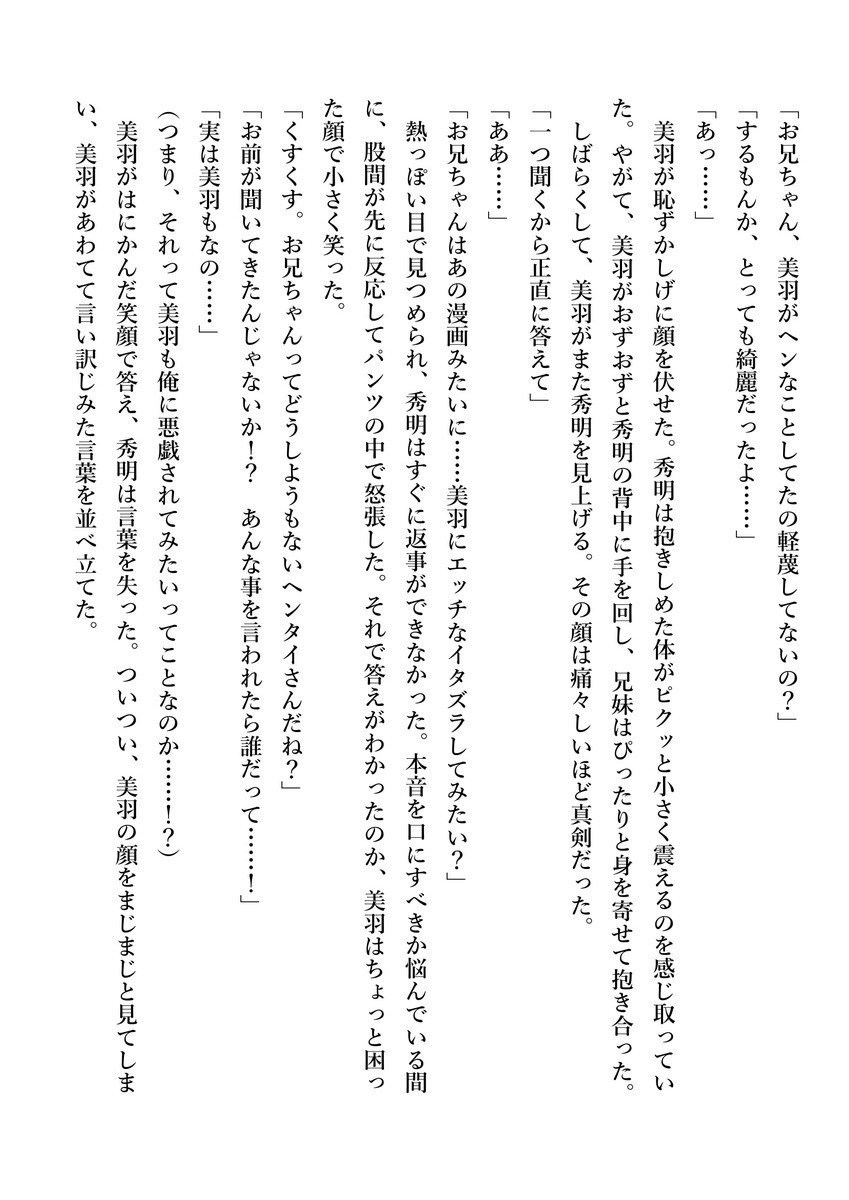 「お兄ちゃん、美羽がヘンなことしてたの軽蔑してないの？」
「するもんか、とっても綺麗だったよ……」
「あっ……」
　美羽が恥ずかしげに顔を伏せた。秀明は抱きしめた体がピクッと小さく震えるのを感じ取ってい
た。やがて、美羽がおずおずと秀明の背中に手を回し、兄妹はぴったりと身を寄せて抱き合った。
　しばらくして、美羽がまた秀明を見上げる。その顔は痛々しいほど真剣だった。
「一つ聞くから正直に答えて」
「ああ……」
「お兄ちゃんはあの漫画みたいに……美羽にエッチなイタズラしてみたい？」
　熱っぽい目で見つめられ、秀明はすぐに返事ができなかった。本音を口にすべきか悩んでいる間
に、股間が先に反応してパンツの中で怒張した。それで答えがわかったのか、美羽はちょっと困っ
た顔で小さく笑った。
「くすくす。お兄ちゃんってどうしようもないヘンタイさんだね？」
「お前が聞いてきたんじゃないか！？　あんな事を言われたら誰だって……！」
「実は美羽もなの……」
(つまり、それって美羽も俺に悪戯されてみたいってことなのか……！？)
　美羽がはにかんだ笑顔で答え、秀明は言葉を失った。ついつい、美羽の顔をまじまじと見てしま
い、美羽があわてて言い訳じみた言葉を並べ立てた。